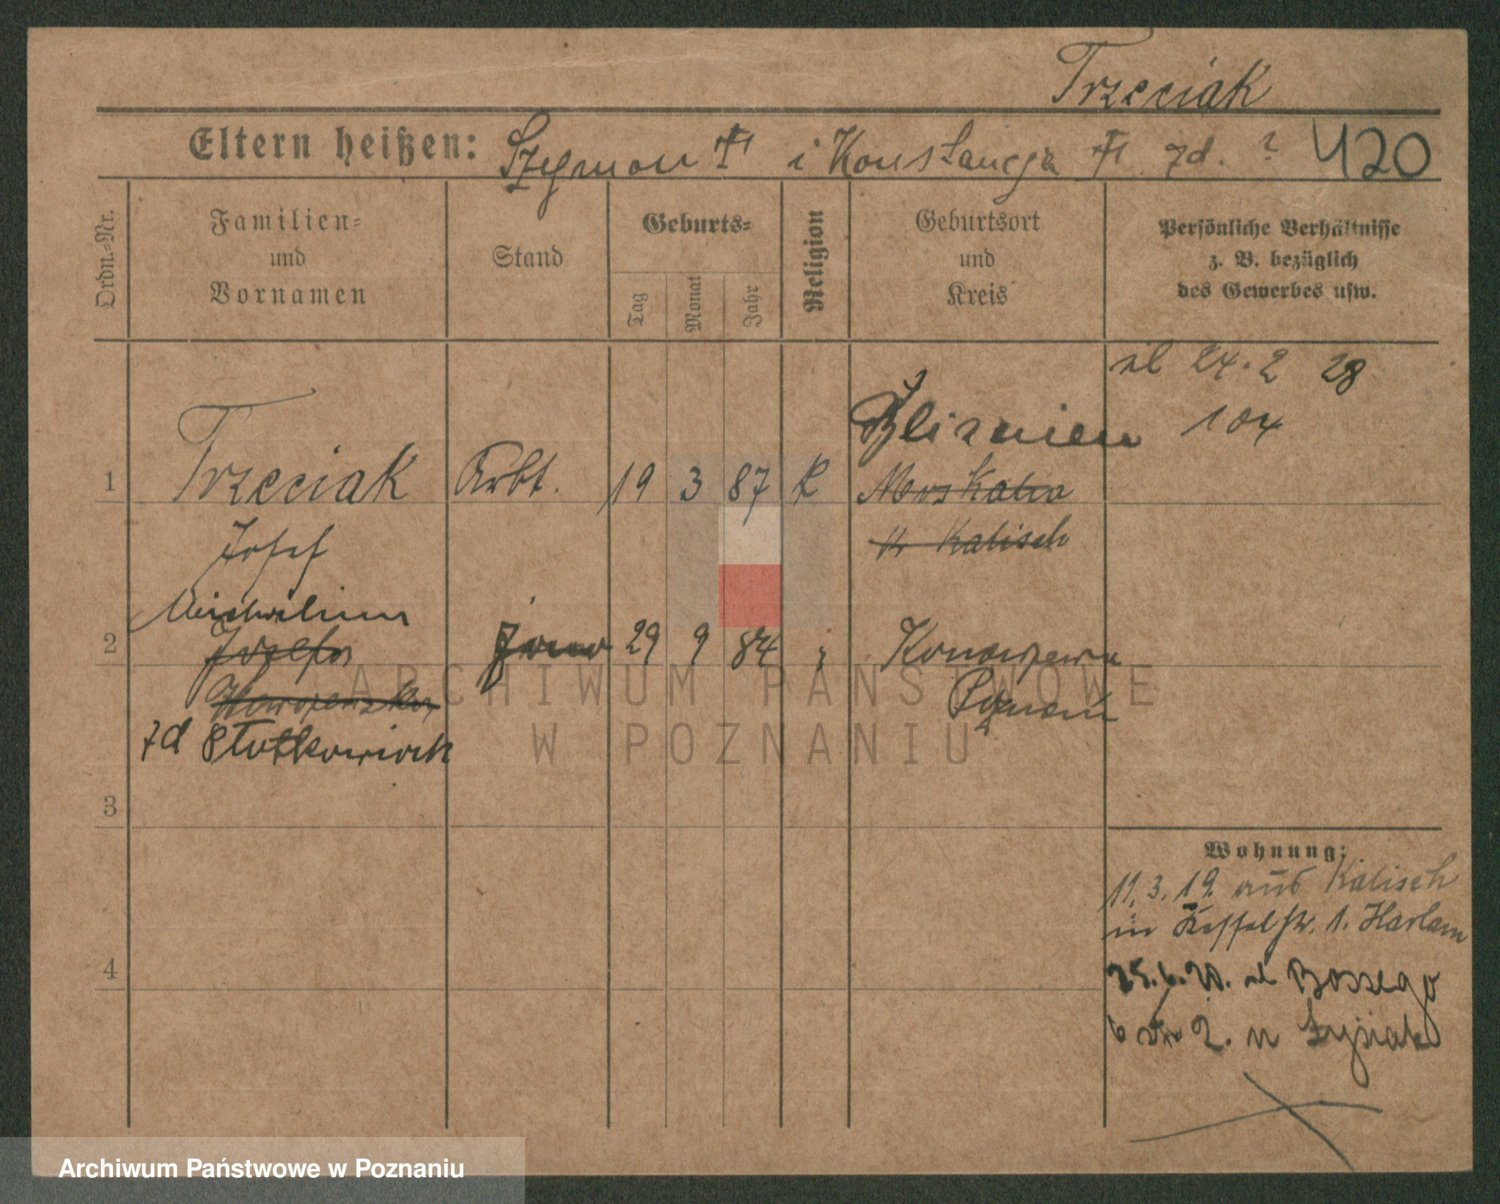 Trzeciak
Eltern heißen: Szymon i Konstancja zd. ? 420
Ordn.-Nr.
Familien- und Vornamen
Stand
Geburts-
Tag
Monat
Jahr
Religion
Geburtsort und Kreis
Persönliche Verhältnisse z. B. bezüglich des Gewerbes usw.
ul 24.2 28
104
Bliznien
1 Trzeciak Arbt. 19 3 87 K
Kalisch
Josef
2 29 9 84 Konarzewo
Józefa
Poznań
zd
ARCHIWUM PAŃSTWOWE
W POZNANIU
3
Wohnung:
11.3.19. aus Kalisch
in Kesselstr. 1. Harlam
4
25.6.20. ul Bossego
2.
Archiwum Państwowe w Poznaniu